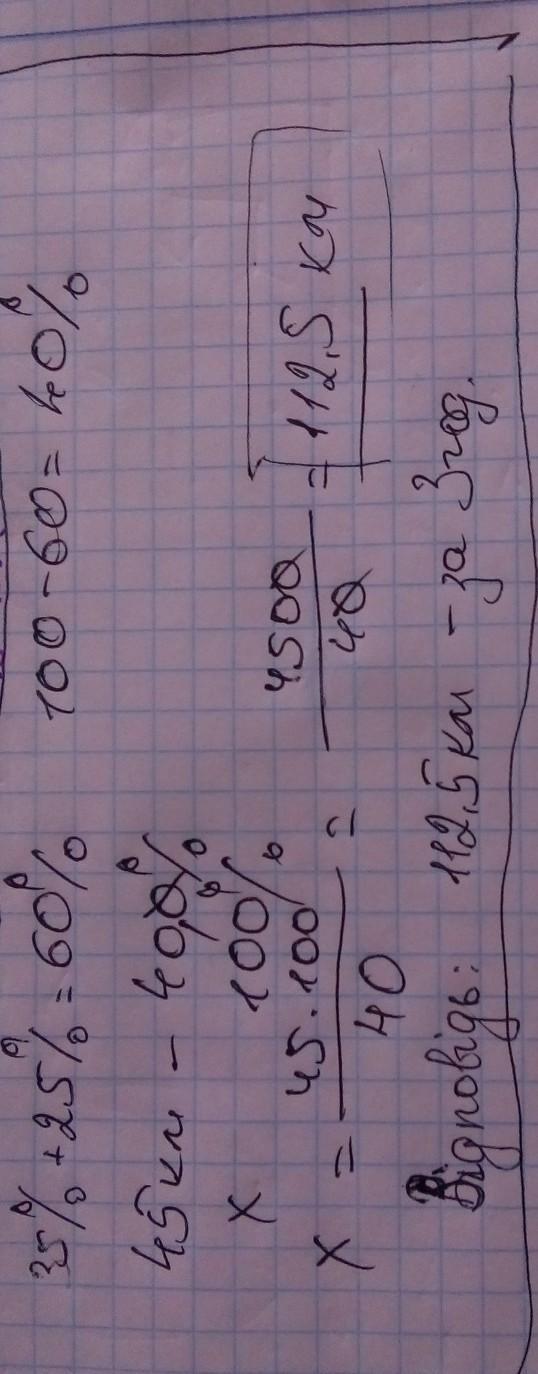 35% + 25% = 60% 100 - 60 = 40%
45 км - 40%
х 100%
х = 45 · 100 / 40 = 4500 / 40 = 112,5 км
Відповідь: 112,5 км - за 3 год.